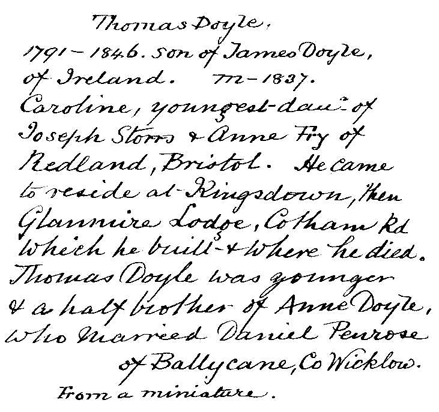 Thomas Doyle.
1791-1846. son of James Doyle,
of Ireland. m-1837.
Caroline, youngest dau: of
Joseph Storrs & Anne Fry of
Redland, Bristol. He came
to reside at Kingsdown, then
Glanmire Lodge, Cotham Rd
which he built & where he died.
Thomas Doyle was younger
& a half brother of Anne Doyle,
who married Daniel Penrose
of Ballycane, Co Wicklow.
From a miniature.